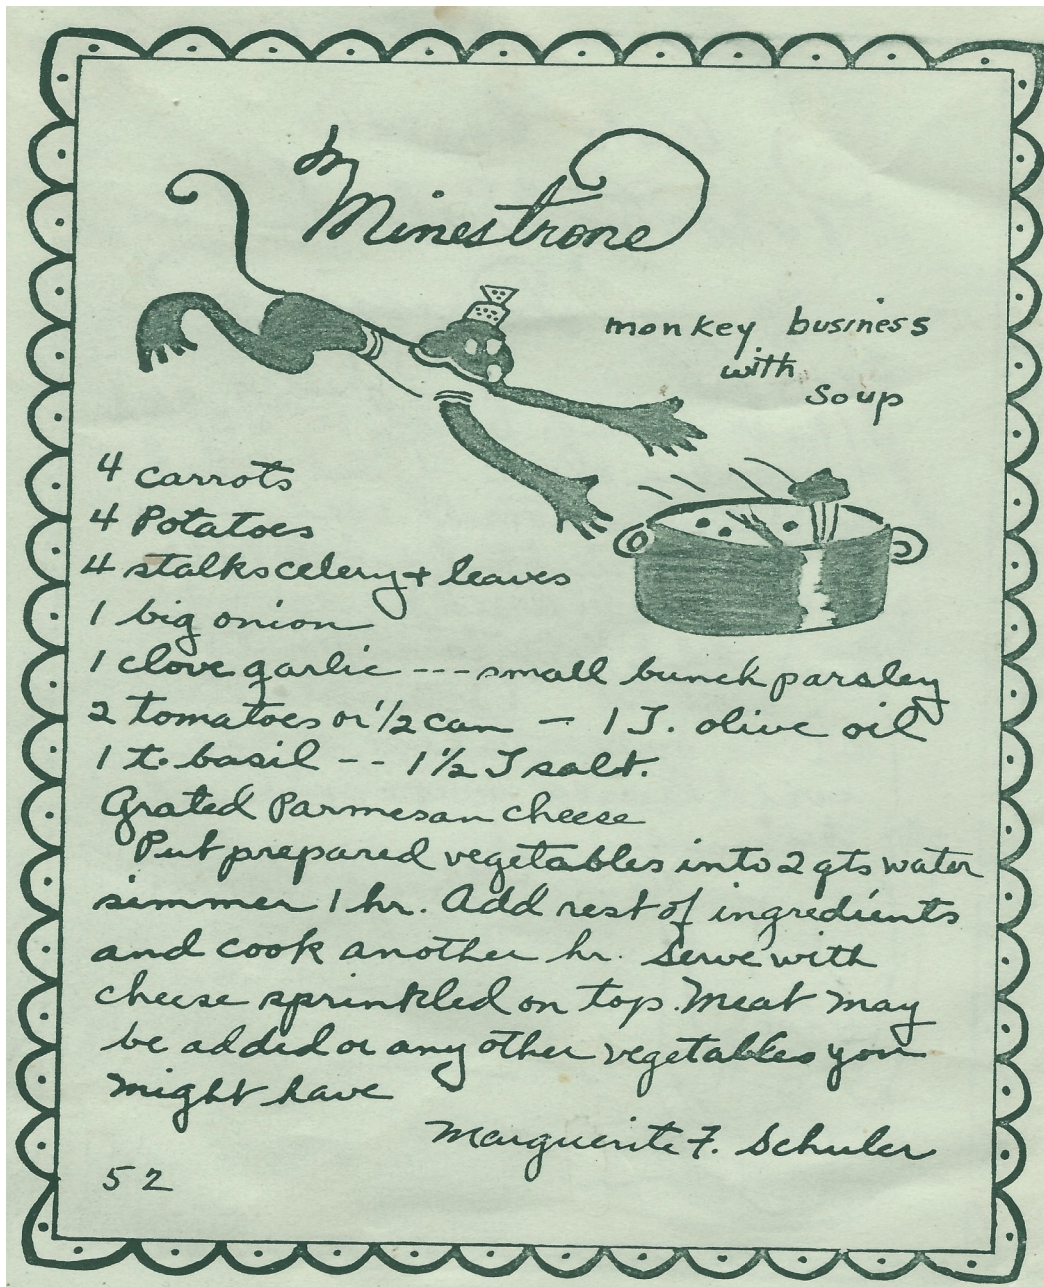 In
Minestrone
monkey business
with
Soup
4 carrots
4 Potatoes
4 stalks celery + leaves
1 big onion
1 clove garlic --- small bunch parsley
2 tomatoes or 1/2 can — 1 T. olive oil
1 t. basil -- 1 1/2 T salt.
Grated Parmesan cheese
Put prepared vegetables into 2 qts water
simmer 1 hr. Add rest of ingredients
and cook another hr. Serve with
cheese sprinkled on top. Meat may
be added or any other vegetables you
might have
Marguerite F. Schuler
52